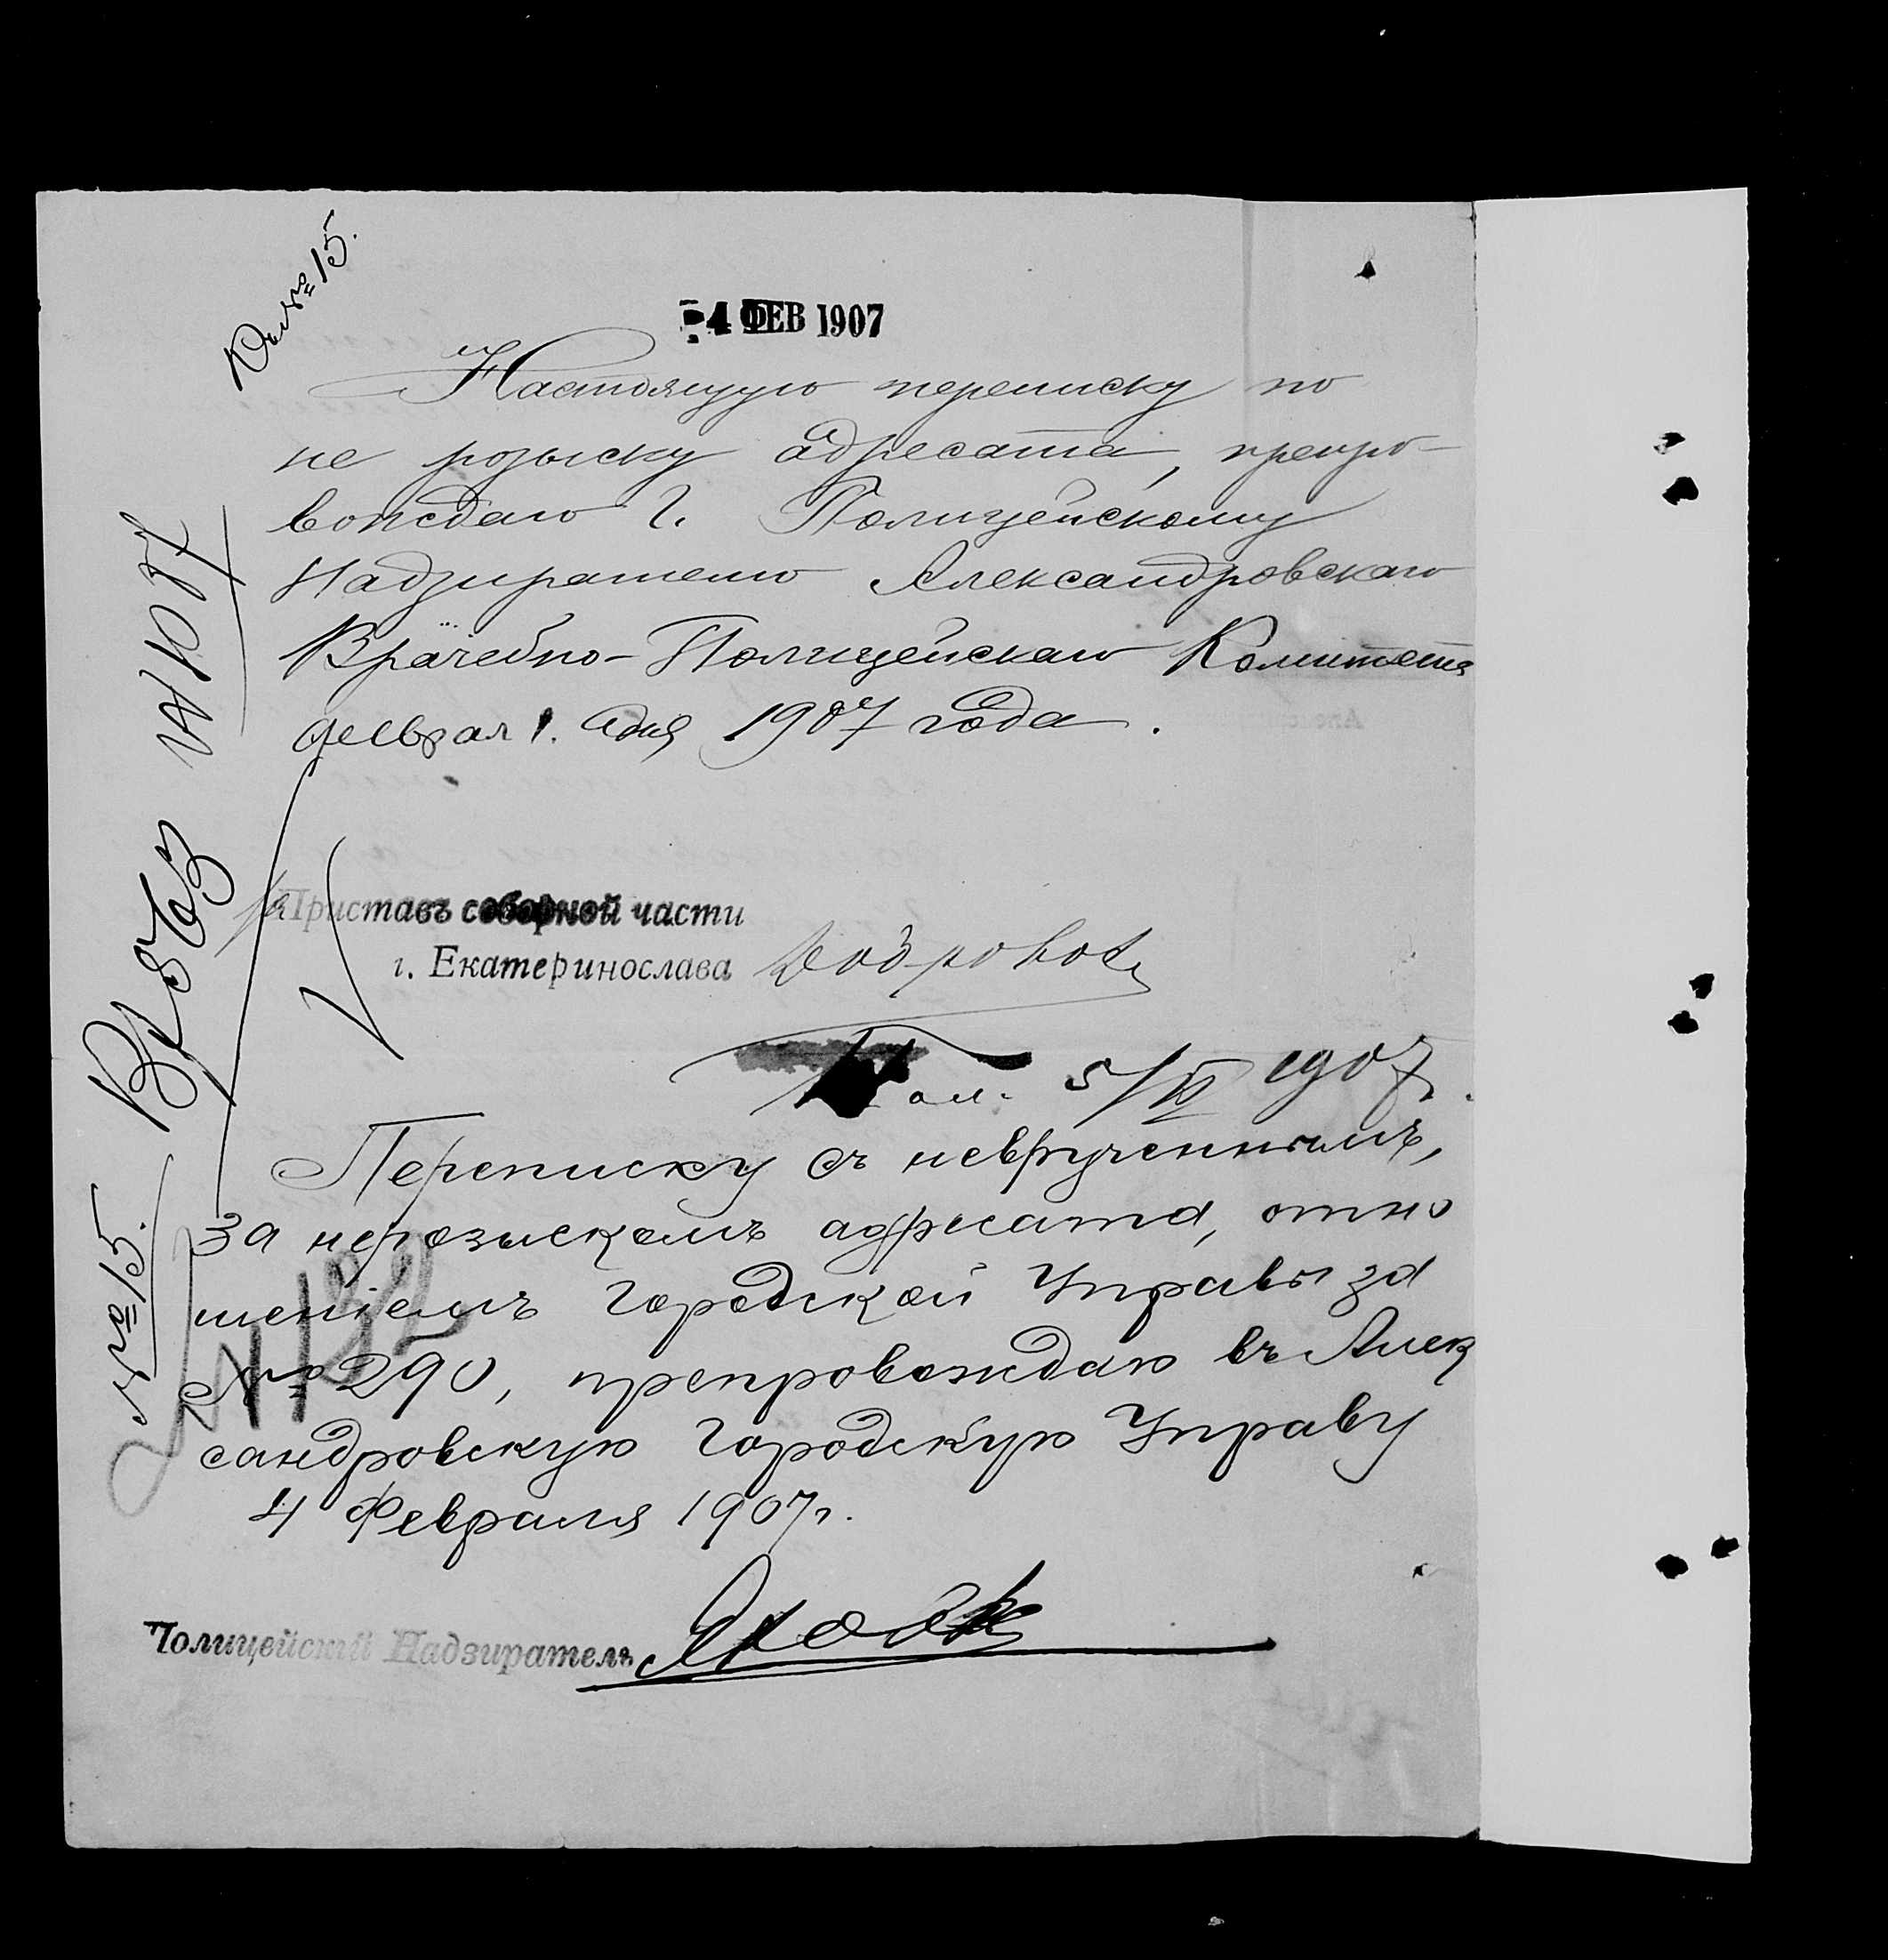 Къ № 15.
4 ФЕВ 1907
Настоящую переписку по
не розыску адресата, препро-
вождаю Г. Полицейскому
Надзирателю Александровскаго
Врачебно-Полицейскаго Комитета
феврал 1. дня 1907 года.
Приставъ соборной части
г. Екатеринослава
Пол. 5/II 1907.
Переписку съ неврученнымъ,
за нерозыскомъ адресата, отно
шеніемъ Городской Управы за
№ 290, препровождаю въ Алек
сандровскую Городскую Управу
4 Февраля 1907 г.
Полицейскій Надзиратель
№ 15.